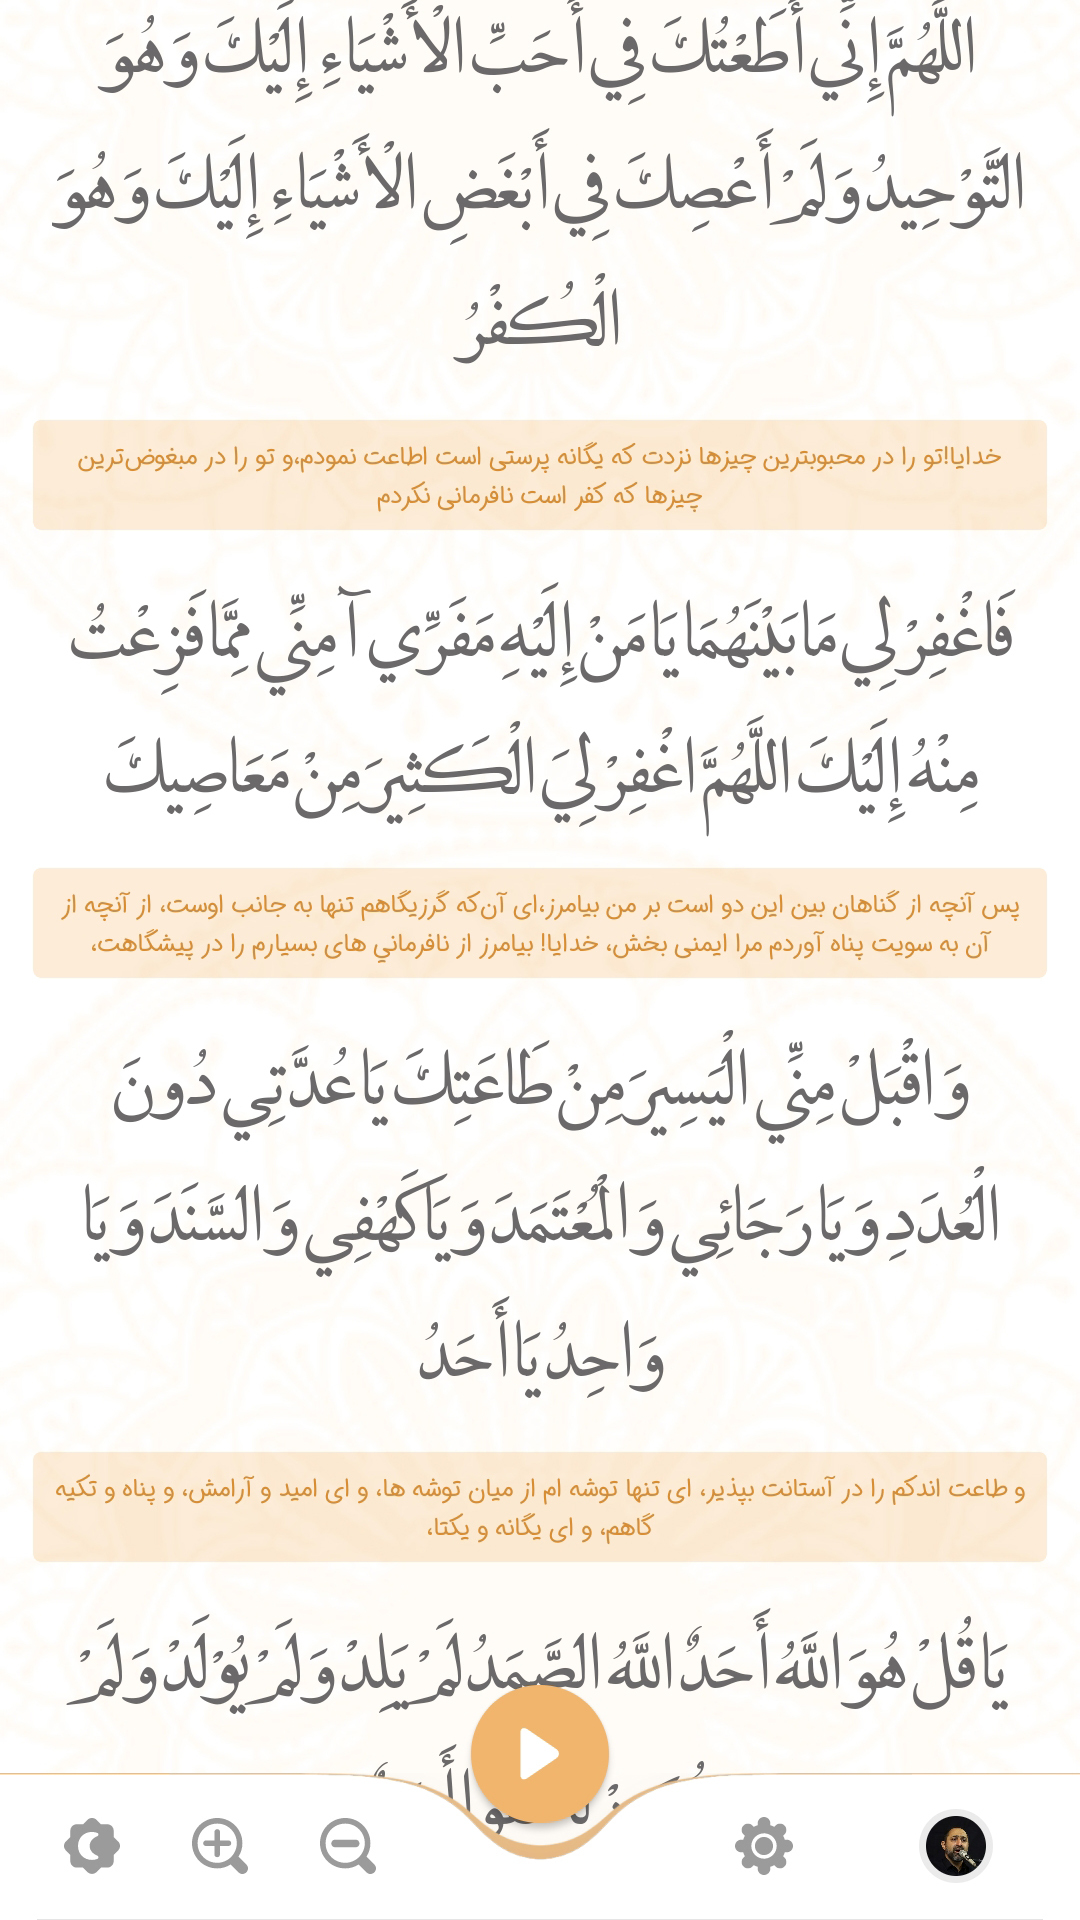 اللَّهُمَّ إِنِّي أَطَعْتُكَ فِي أَحَبِّ الْأَشْيَاءِ إِلَيْكَ وَ هُوَ
التَّوْحِيدُ وَ لَمْ أَعْصِكَ فِي أَبْغَضِ الْأَشْيَاءِ إِلَيْكَ وَ هُوَ
الْكُفْرُ
خدایا!تو را در محبوبترین چیزها نزدت که یگانه پرستی است اطاعت نمودم،و تو را در مبغوض‌ترین
چیزها که کفر است نافرمانی نکردم
فَاغْفِرْ لِي مَا بَيْنَهُمَا يَا مَنْ إِلَيْهِ مَفَرِّي آمِنِّي مِمَّا فَزِعْتُ
مِنْهُ إِلَيْكَ اللَّهُمَّ اغْفِرْ لِيَ الْكَثِيرَ مِنْ مَعَاصِيكَ
پس آنچه از گناهان بین این دو است بر من بیامرز،ای آن‌که گرزیگاهم تنها به جانب اوست، از آنچه از
آن به سویت پناه آوردم مرا ایمنی بخش، خدایا! بیامرز از نافرماني های بسیارم را در پیشگاهت،
وَ اقْبَلْ مِنِّي الْيَسِيرَ مِنْ طَاعَتِكَ يَا عُدَّتِي دُونَ
الْعُدَدِ وَ يَا رَجَائِي وَ الْمُعْتَمَدَ وَ يَا كَهْفِي وَ السَّنَدَ وَ يَا
وَاحِدُ يَا أَحَدُ
و طاعت اندکم را در آستانت بپذیر، ای تنها توشه ام از میان توشه ها، و ای امید و آرامش، و پناه و تکیه
گاهم، و ای یگانه و یکتا،
يَا قُلْ هُوَ اللَّهُ أَحَدٌ اللَّهُ الصَّمَدُ لَمْ يَلِدْ وَ لَمْ يُوْلَدْ وَ لَمْ